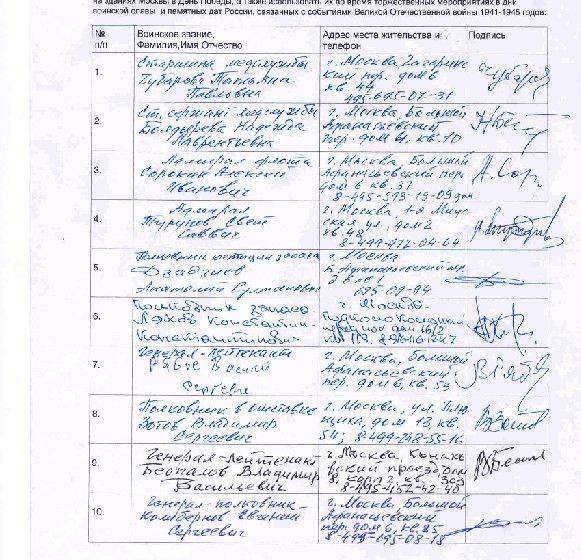 на зданиях Москвы в День Победы, а также использовать их во время торжественных мероприятиях в дни
воинской славы и памятных дат России, связанных с событиями Великой Отечественной войны 1941-1945 годов:
№ п/п
Воинское звание, Фамилия,Имя.Отчество
Адрес места жительства и телефон
Подпись
1.
Старшина медслужбы
Павловна
г. Москва,
пер. дом 6
кв. 44
495-695-07-31
2.
Ст. сержант медслужбы
Болдырева Надежда
Лаврентьевна
г. Москва, Большой
Афанасьевский
пер. дом 4, кв. 10
3.
Адмирал флота
Сорокин Алексей
Иванович
г. Москва, Большой
Афанасьевский пер
дом 6 кв. 37
8-495-593-19-09 дом
А. Сор.
4.
Адмирал
Саввич
г. Москва, 1-я
ул, дом 2
кв. 48
8-499-972-04-04
5.
Полковник юстиции запаса
Дзадзиев
Анатолий
г. Москва
Б. Афанасьевский пр.
695-09-94
6.
запаса
Константин
Константинович
г. Москва
7.
Генерал-лейтенант
Сергеевич
г. Москва, Большой
Афанасьевский
пер. дом 6, кв. 53
8.
Полковник в отставке
Зотов Владимир
Сергеевич
г. Москва, ул. Плю
щиха, дом 13, кв.
54; 8-499-248-55-16
9.
Генерал-лейтенант
Беспалов Владимир
Васильевич
г. Москва,
проезд дом
8, корп 2, кв. 303
8-495-452-42-40
10.
генерал-полковник
Евгений
Сергеевич
г. Москва, Большой
Афанасьевский
пер. дом 6, кв. 85
8-495-695-08-18